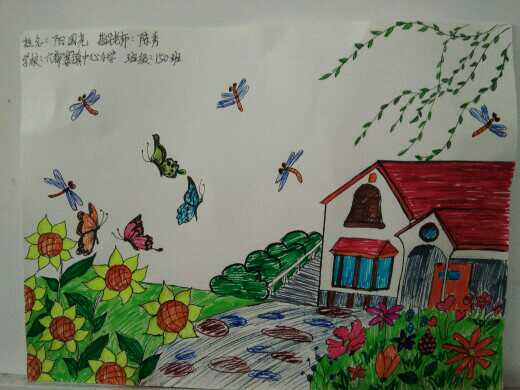 姓名: 阳国亮 指导老师: 陈秀
学校: 六都寨镇中心小学 班级: 150班